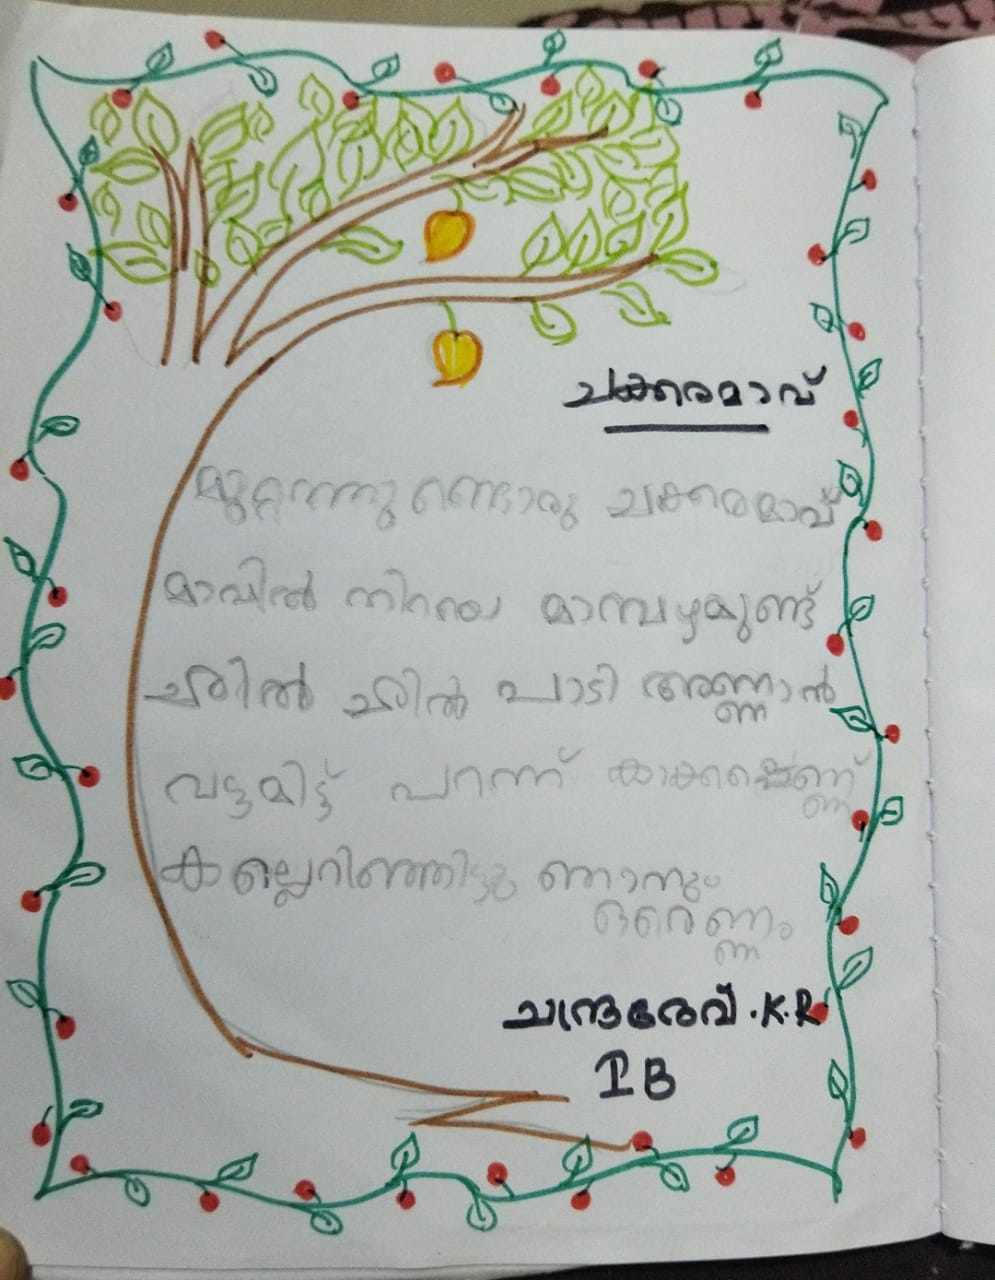 ചക്കരമാവ്
മുറ്റത്തുണ്ടൊരു ചക്കരമാവ്
മാവിൽ നിറയെ മാമ്പഴമുണ്ട്
ചിൽ ചിൽ പാടി അണ്ണാൻ
വട്ടമിട്ട് പറന്ന് കാക്കപ്പെണ്ണ്
കല്ലെറിഞ്ഞിട്ടു ഞാനും
ഒരെണ്ണം
ചന്ദ്രദേവ്.K.R
I B